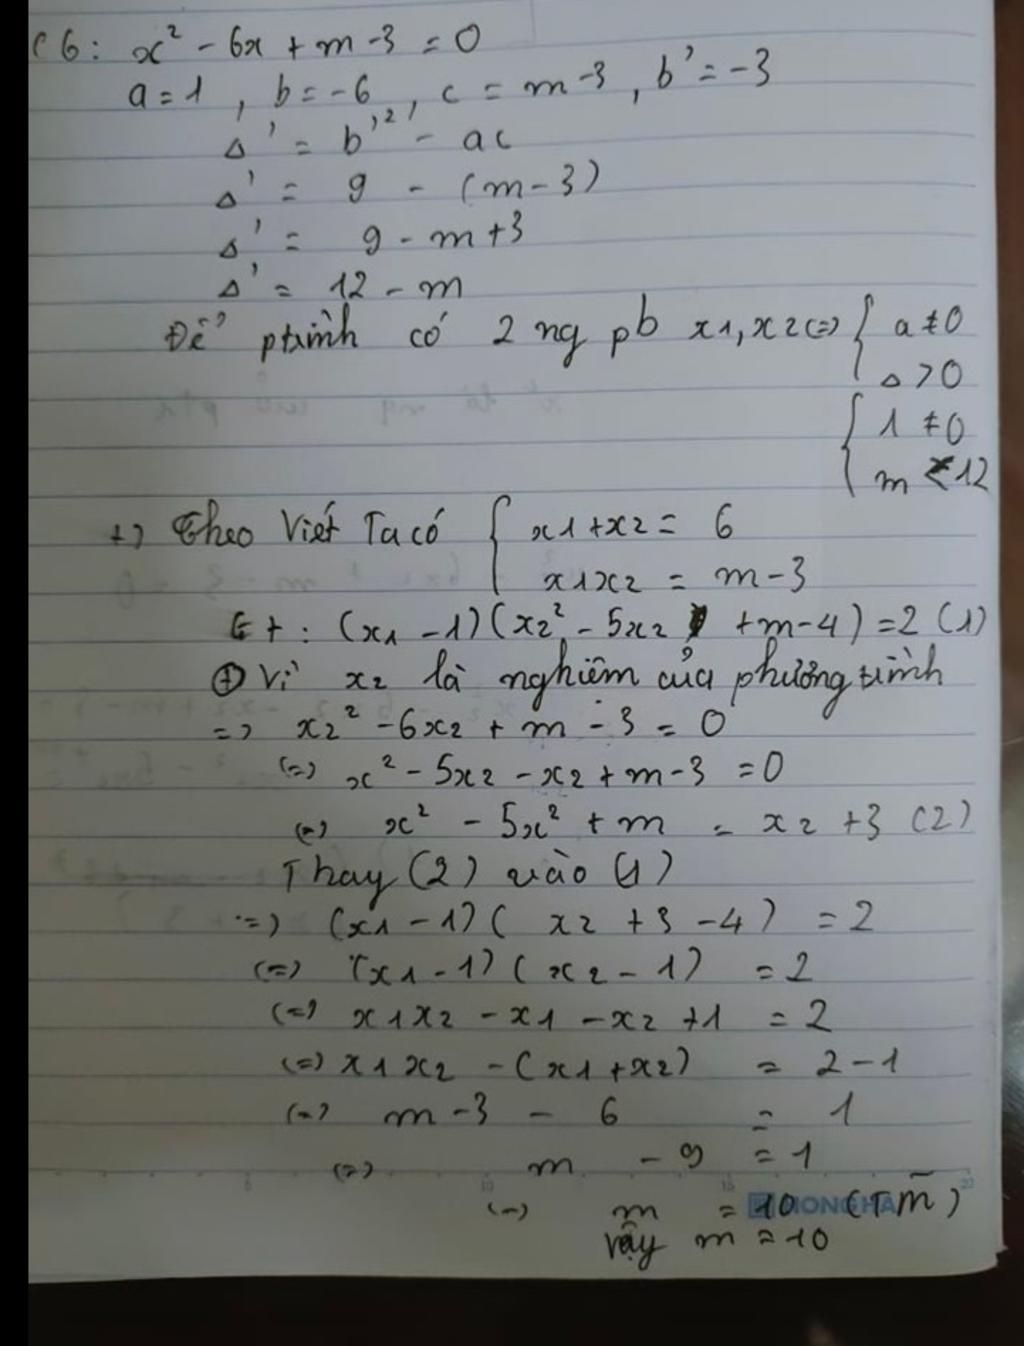 C6: x² - 6x + m - 3 = 0
a = 1, b = -6, c = m - 3, b' = -3
Δ' = b'² - ac
Δ' = 9 - (m - 3)
Δ' = 9 - m + 3
Δ' = 12 - m
Để ptrình có 2 ng pb x1, x2 (=) { a ≠ 0
Δ > 0
{ 1 ≠ 0
m < 12
+) Theo Viét Ta có { x1 + x2 = 6
x1x2 = m - 3
Gt: (x1 - 1)(x2² - 5x2 + m - 4) = 2 (1)
⊕ Vì x2 là nghiệm của phương trình
=> x2² - 6x2 + m - 3 = 0
(=) x² - 5x2 - x2 + m - 3 = 0
(=) x² - 5x² + m = x2 + 3 (2)
Thay (2) vào (1)
=) (x1 - 1)( x2 + 3 - 4) = 2
(=) (x1 - 1)(x2 - 1) = 2
(=) x1x2 - x1 - x2 + 1 = 2
(=) x1x2 - (x1 + x2) = 2 - 1
(=) m - 3 - 6 = 1
(=) m - 9 = 1
(=) m = 10 (Tm̃)
Vậy m = 10